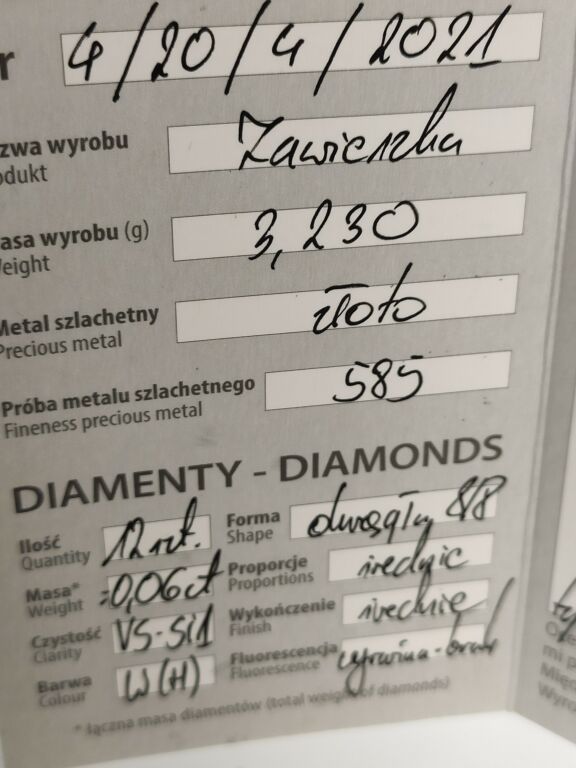 r 4/20/4/2021
zwa wyrobu Zawieszka
odukt
asa wyrobu (g) 3,230
Weight
Metal szlachetny złoto
Precious metal
Próba metalu szlachetnego 585
Fineness precious metal
DIAMENTY - DIAMONDS
Ilość 12 szt. Forma okrągły 88
Quantity Shape
Masa* =0,06ct Proporcje średnie
Weight Proportions
Czystość VS-Si1 Wykończenie średnie
Clarity Finish
Barwa W(H) Fluorescencja
Colour Fluorescence
* łączna masa diamentów (total weight of diamonds)
mi p
Wyro